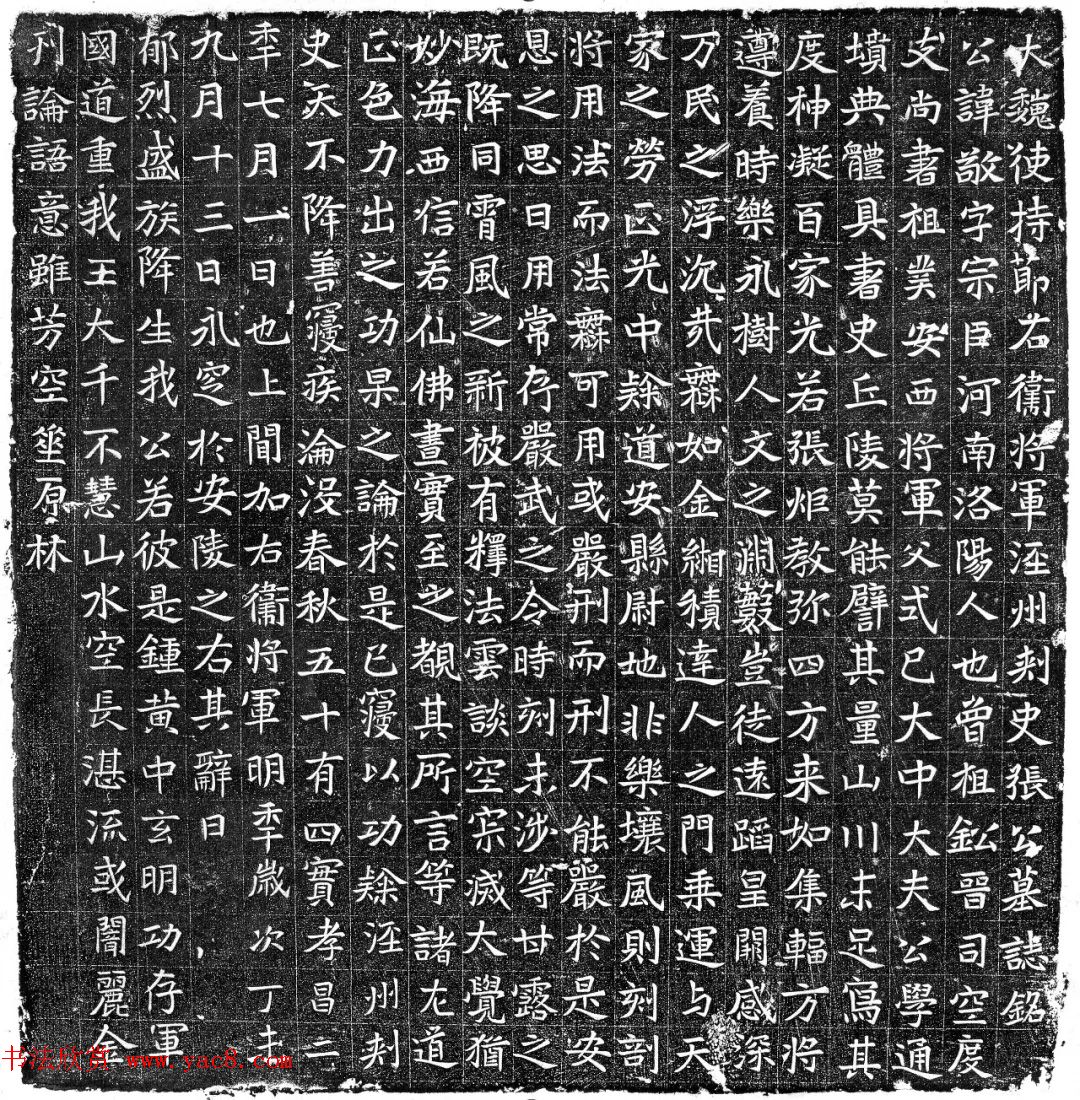 大魏使持節右衞將軍涇州刺史張公墓誌銘
公諱敬字宗臣河南洛陽人也曾祖鈆晉司空度
支尚書祖業安西將軍父式已大中大夫公學通
墳典體具書史丘陵莫能譬其量山川未足寫其
度神凝百家光若張炬教弥四方来如集輻方將
遵養時樂永樹人文之淵藪豈徒遠蹈皇闕感深
万民之浮沉炁霖如金緗積達人之門乗運与天
家之勞正光中除道安縣尉地非樂壤風則刻剖
將用法而法霖可用或嚴刑而刑不能嚴於是安
恩之思日用常存嚴武之令時刻未涉等甘露之
既降同霄風之新被有釋法雲談空宗滅大覺猶
妙海西信若仙佛晝實至之覩其所言等諸左道
正色力出之功杲之論於是已寑以功除涇州刺
史天不降善寑疾淪没春秋五十有四實孝昌二
年七月一日也上聞加右衞將軍明年歲次丁未
九月十三日永窆於安陵之右其辭曰
郁烈盛族降生我公若彼是鍾黄中玄明功存軍
國道重我王大千不慧山水空長湛流或闇麗金
刊論語意雖芳空埊原林
书法欣赏 www.yac8.com